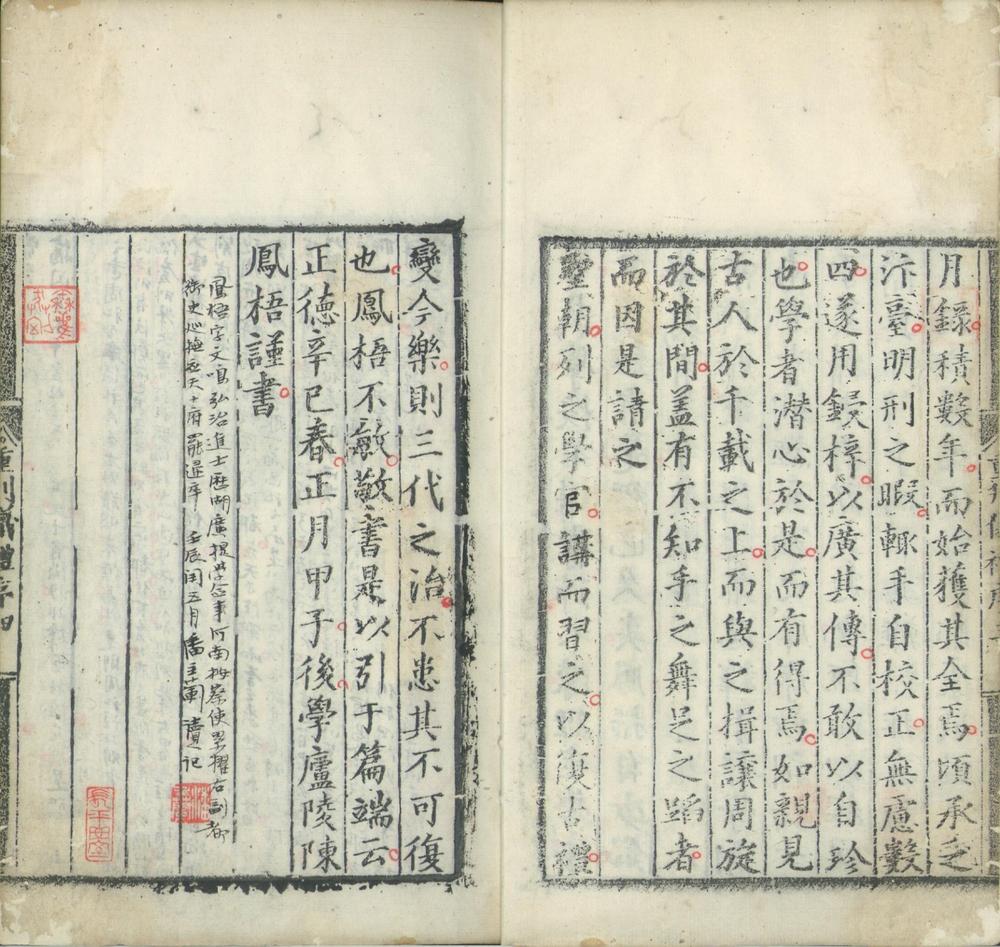 月錄積數年而始獲其全焉頃承乏
汴臺明刑之暇輒手自校正無慮數
四遂用鋟梓以廣其傳不敢以自珍
也學者潛心於是而有得焉如親見
古人於千載之上而與之揖讓周旋
於其間蓋有不知手之舞足之蹈者
而因是請之
聖朝列之學官講而習之以復古禮
變今樂則三代之治不患其不可復
也鳳梧不敏敬書是以引于篇端云
正德辛巳春正月甲子後學廬陵陳
鳳梧謹書
鳳梧字文鳴弘治進士歷湖廣提學僉事河南按察使累擢右副都
御史巡撫應天十府罷還卒 壬辰閏五月潘圭 讀記
重刊儀禮序 四